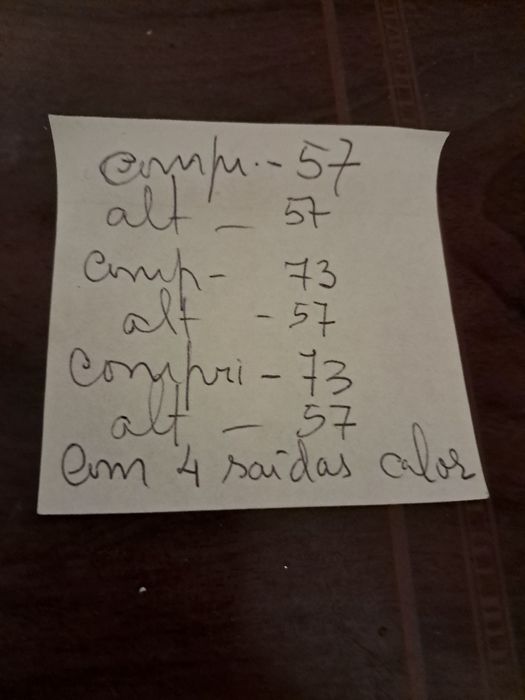 compr. - 57
alt - 57
comp - 73
alt - 57
compri - 73
alt - 57
com 4 saídas calor